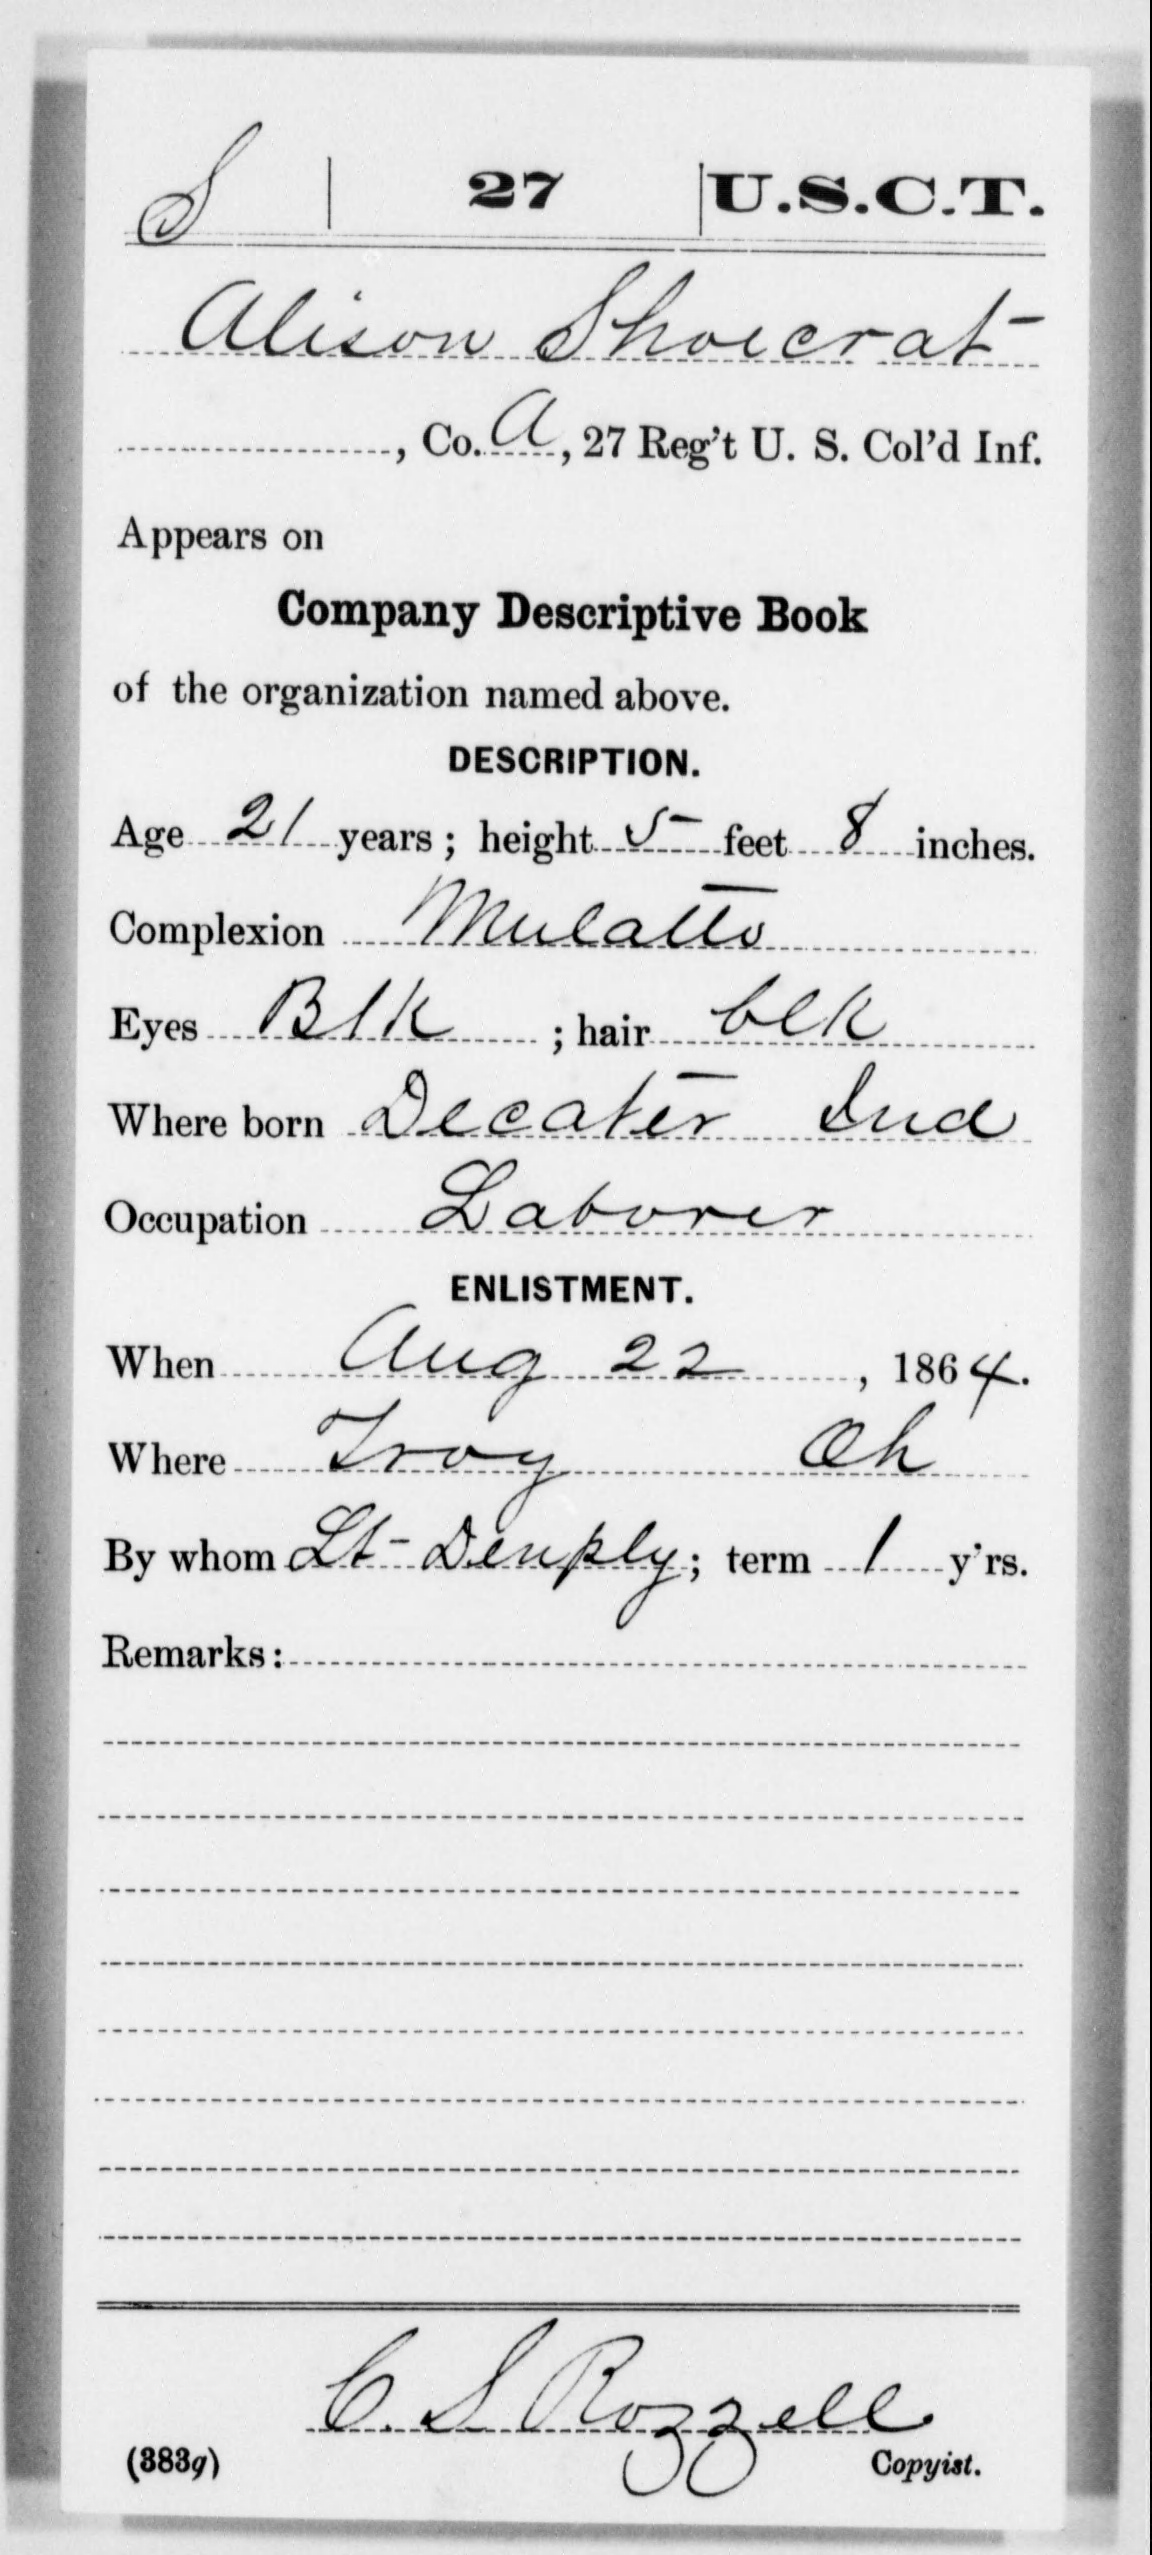 S | 27 | U.S.C.T.
Alison Shoecrat
, Co. A, 27 Reg't U. S. Col'd Inf.
Appears on
Company Descriptive Book
of the organization named above.
DESCRIPTION.
Age 21 years; height 5 feet 8 inches.
Complexion Mulatto
Eyes Blk ; hair blk
Where born Decater Ind
Occupation Laborer
ENLISTMENT.
When Aug 22, 1864.
Where Troy Oh
By whom Lt Denply; term 1 y'rs.
Remarks:
C. S Rozzell
(383g) Copyist.